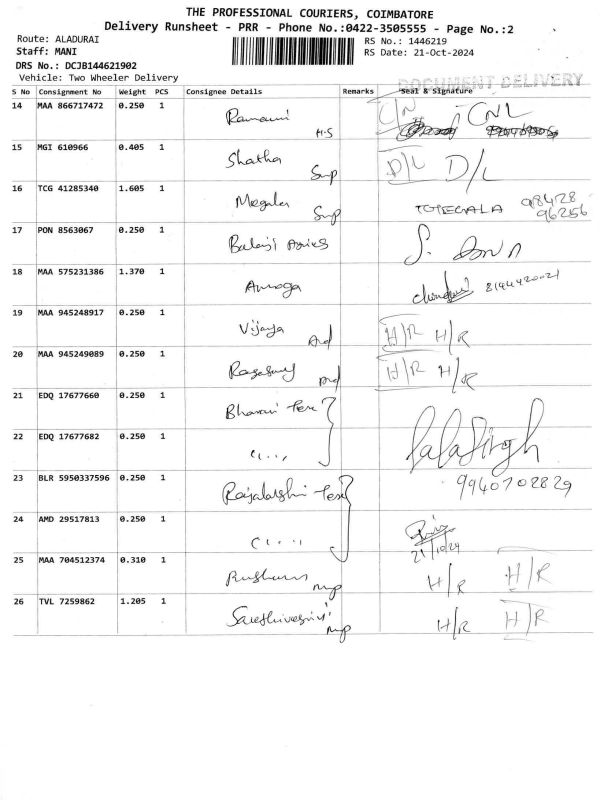 THE PROFESSIONAL COURIERS, COIMBATORE
Delivery Runsheet - PRR - Phone No.:0422-3505555 - Page No.:2
Route: ALADURAI
RS No.: 1446219
Staff: MANI
RS Date: 21-Oct-2024
DRS No.: DCJB144621902
Vehicle: Two Wheeler Delivery
DOCUMENT DELIVERY
S No Consignment No Weight PCS Consignee Details Remarks Seal & Signature
14 MAA 866717472 0.250 1 H-S C/N CNL
15 MGI 610966 0.405 1 Shatha Smp D/L D/L
16 TCG 41285340 1.605 1 Megala Smp 98428
96256
17 PON 8563067 0.250 1 Balaji S.
18 MAA 575231386 1.370 1 Amoga
19 MAA 945248917 0.250 1 Vijaya H/R H/R
20 MAA 945249089 0.250 1 H/R H/R
21 EDQ 17677660 0.250 1 Bharani Tex
22 EDQ 17677682 0.250 1 LalaSingh
23 BLR 5950337596 0.250 1 Rajalakshmi Tex 9940702829
24 AMD 29517813 0.250 1
21/10/24
25 MAA 704512374 0.310 1 mp H/R H/R
26 TVL 7259862 1.205 1 mp H/R H/R